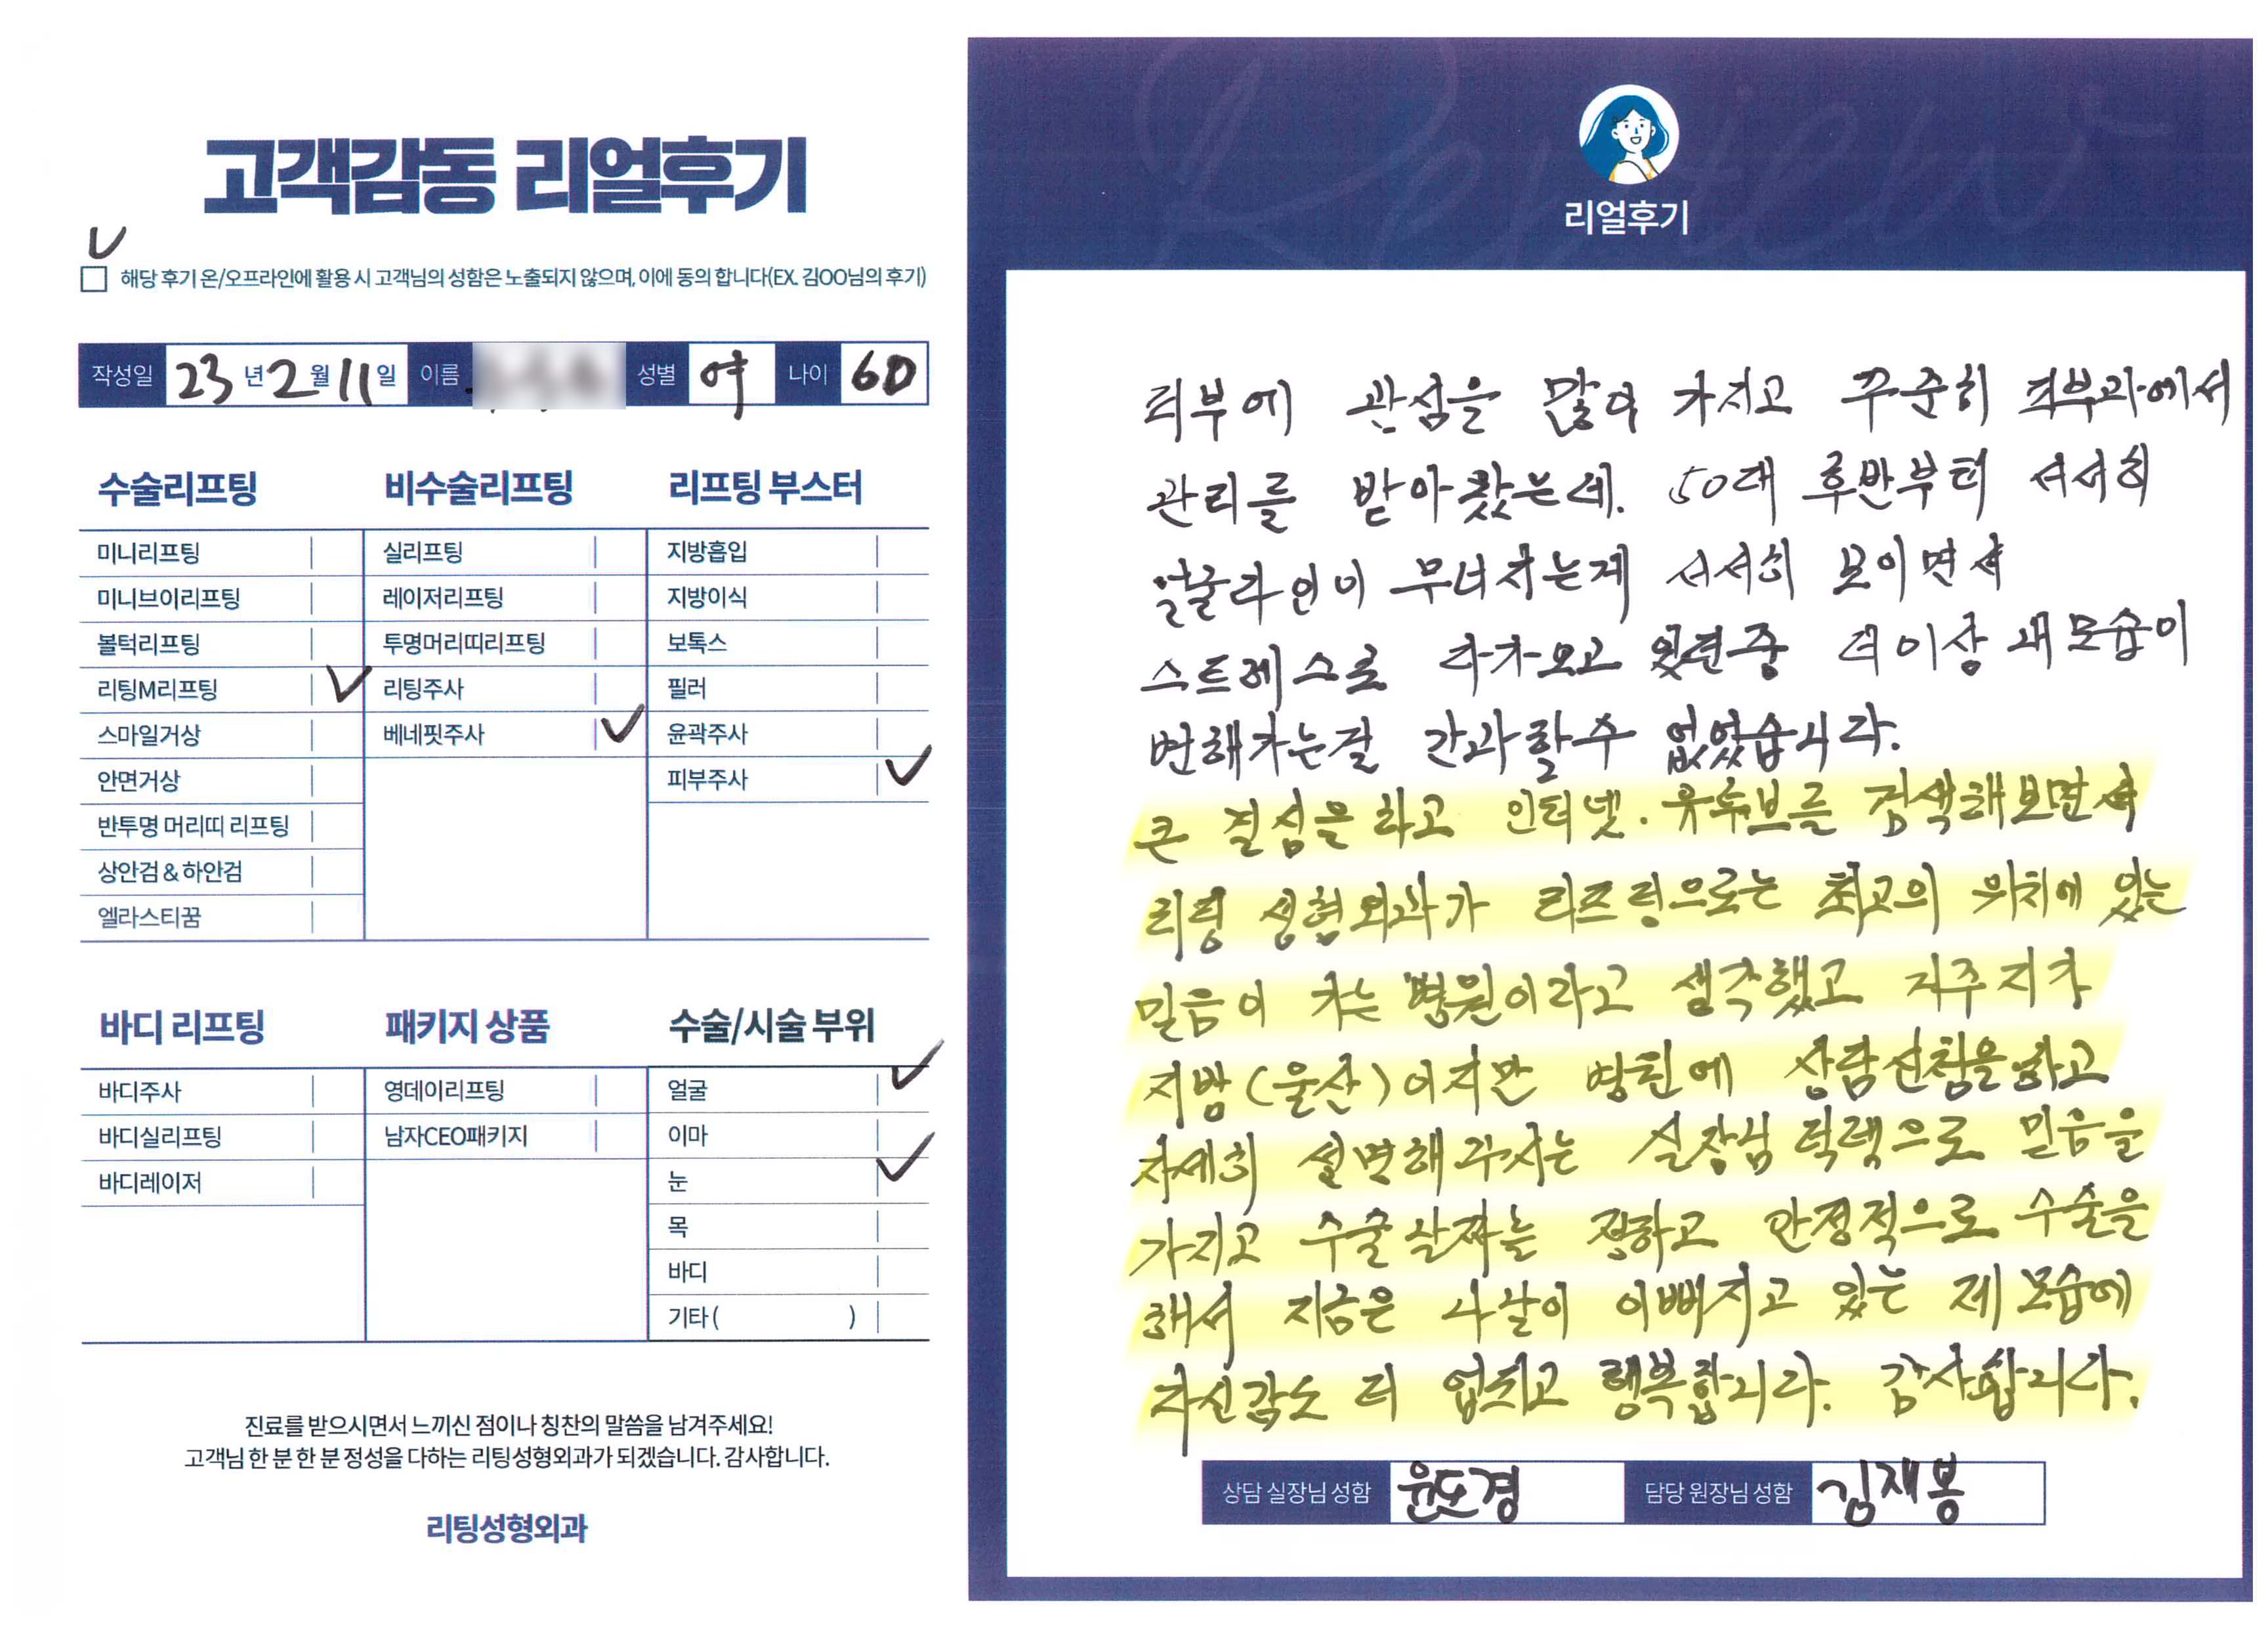 고객감동 리얼후기
해당 후기 온/오프라인에 활용 시 고객님의 성함은 노출되지 않으며, 이에 동의 합니다(EX. 김OO님의 후기)
작성일 23 년 2 월 11 일 이름 성별 여 나이 60
수술리프팅
미니리프팅
미니브이리프팅
볼턱리프팅
리팅M리프팅
스마일거상
안면거상
반투명 머리띠 리프팅
상안검 & 하안검
엘라스티꿈
비수술리프팅
실리프팅
레이저리프팅
투명머리띠리프팅
리팅주사
베네핏주사
리프팅 부스터
지방흡입
지방이식
보톡스
필러
윤곽주사
피부주사
바디 리프팅
바디주사
바디실리프팅
바디레이저
패키지 상품
영데이리프팅
남자CEO패키지
수술/시술 부위
얼굴
이마
눈
목
바디
기타 ( )
진료를 받으시면서 느끼신 점이나 칭찬의 말씀을 남겨주세요!
고객님 한 분 한 분 정성을 다하는 리팅성형외과가 되겠습니다. 감사합니다.
리팅성형외과
Review
리얼후기
피부에 관심을 많이 가지고 꾸준히 피부과에서
관리를 받아왔는데. 50대 후반부터 서서히
얼굴라인이 무너지는게 서서히 보이면서
스트레스로 다가오고 있던중 더이상 내모습이
변해가는걸 간과할수 없었습니다.
큰 결심을 하고 인터넷. 유튜브를 검색해보면서
리팅 성형외과가 리프팅으로는 최고의 위치에 있는
믿음이 가는 병원이라고 생각했고 거주지가
지방(울산)이지만 병원에 상담신청을하고
자세히 설명해주시는 실장님 덕택으로 믿음을
가지고 수술날짜를 정하고 안정적으로 수술을
해서 지금은 나날이 이뻐지고 있는 제 모습에
자신감도 더 업되고 행복합니다. 감사합니다.
상담 실장님 성함 윤도경 담당 원장님 성함 김재봉